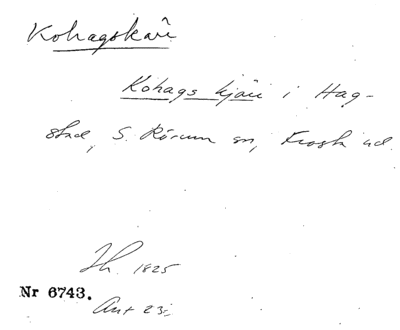 Kohagskärr
Kohags kjärr i Hag-
stad, S. Rörum sn, Frosta hd.
Th. 1825
Nr 6743.
Ant 23